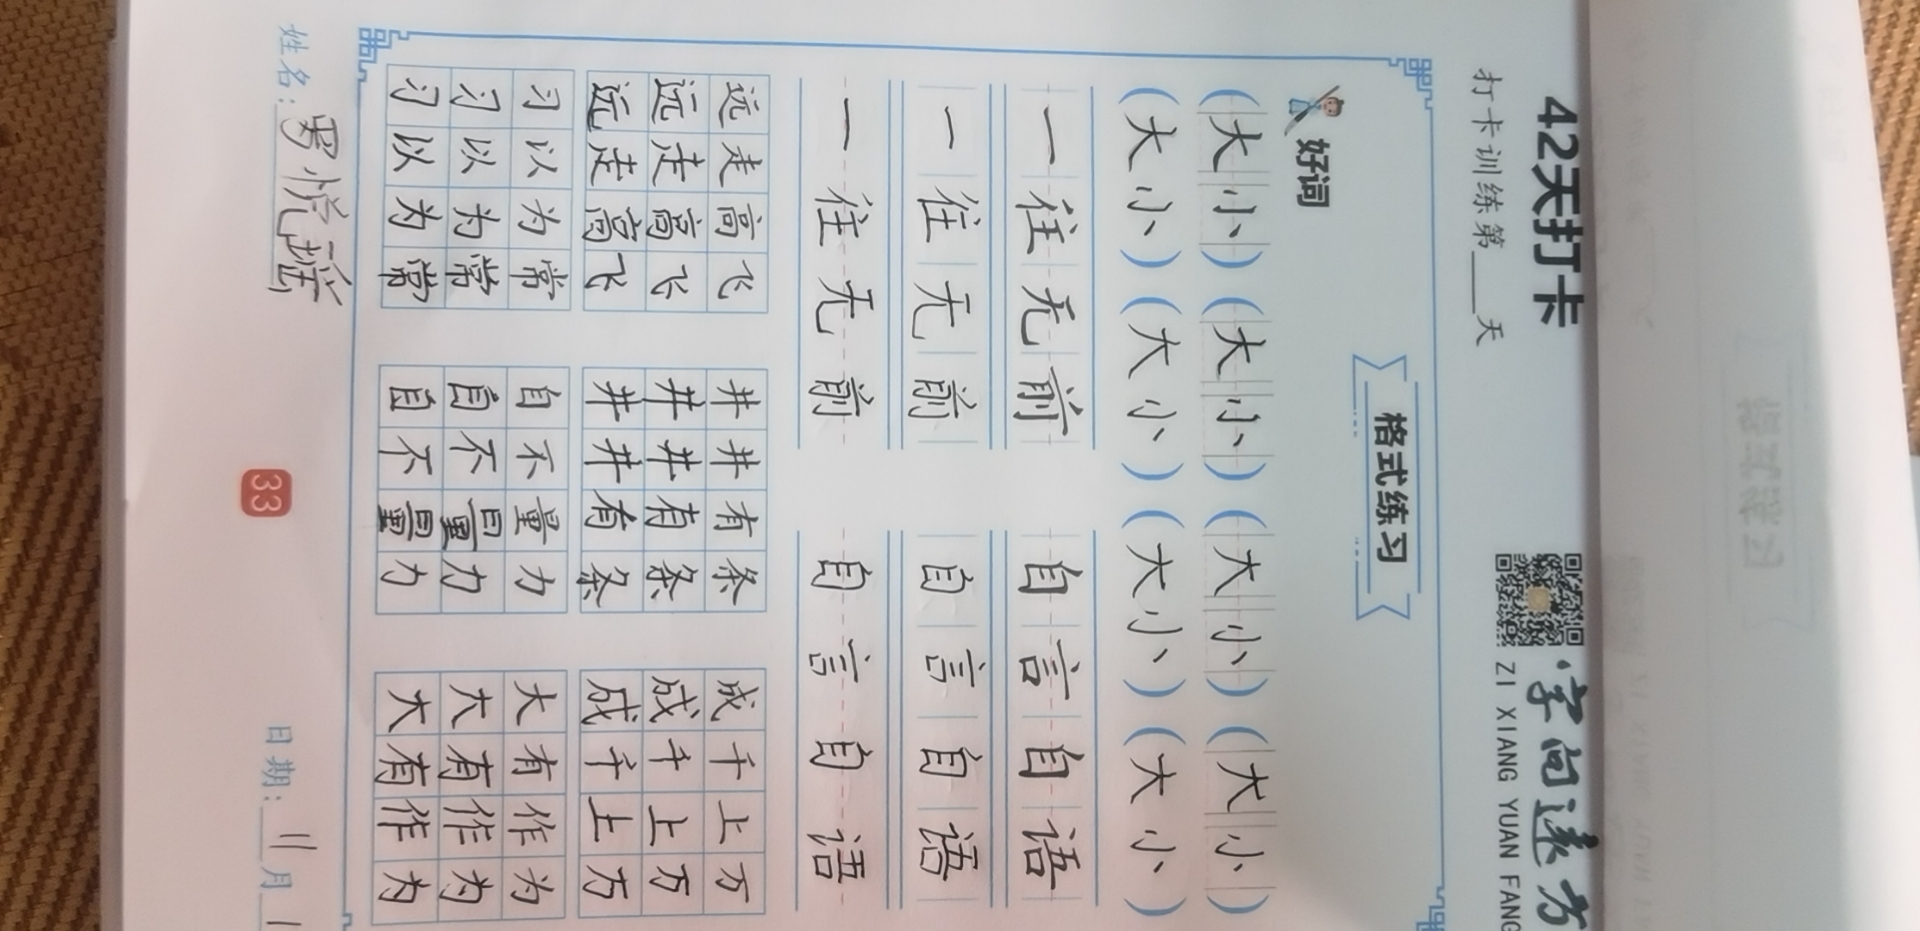 42天打卡
字向远方
打卡训练第____天
ZI XIANG YUAN FANG
格式练习
好词
(大小)(大小)(大小)(大小)
(大小)(大小)(大小)(大小)
一往无前 自言自语
一往无前 自言自语
一往无前 自言自语
远走高飞 井井有条 成千上万
远走高飞 井井有条 成千上万
远走高飞 井井有条 成千上万
习以为常 自不量力 大有作为
习以为常 自不量力 大有作为
习以为常 自不量力 大有作为
姓名: 日期:11月1
33